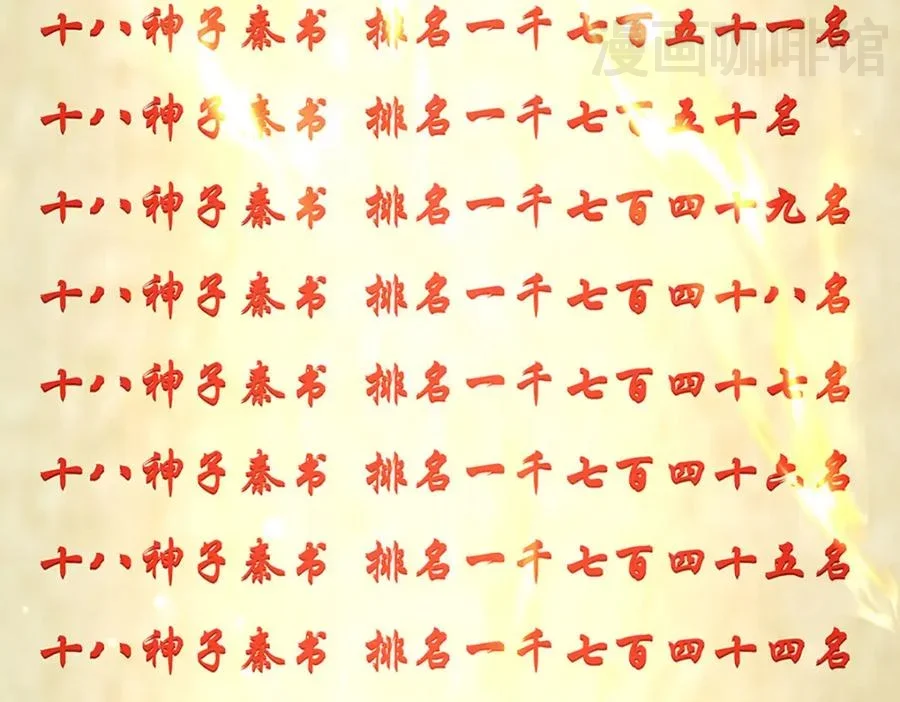 十八神子秦书 排名一千七百五十一名
漫画咖啡馆
十八神子秦书 排名一千七百五十名
十八神子秦书 排名一千七百四十九名
十八神子秦书 排名一千七百四十八名
十八神子秦书 排名一千七百四十七名
十八神子秦书 排名一千七百四十六名
十八神子秦书 排名一千七百四十五名
十八神子秦书 排名一千七百四十四名